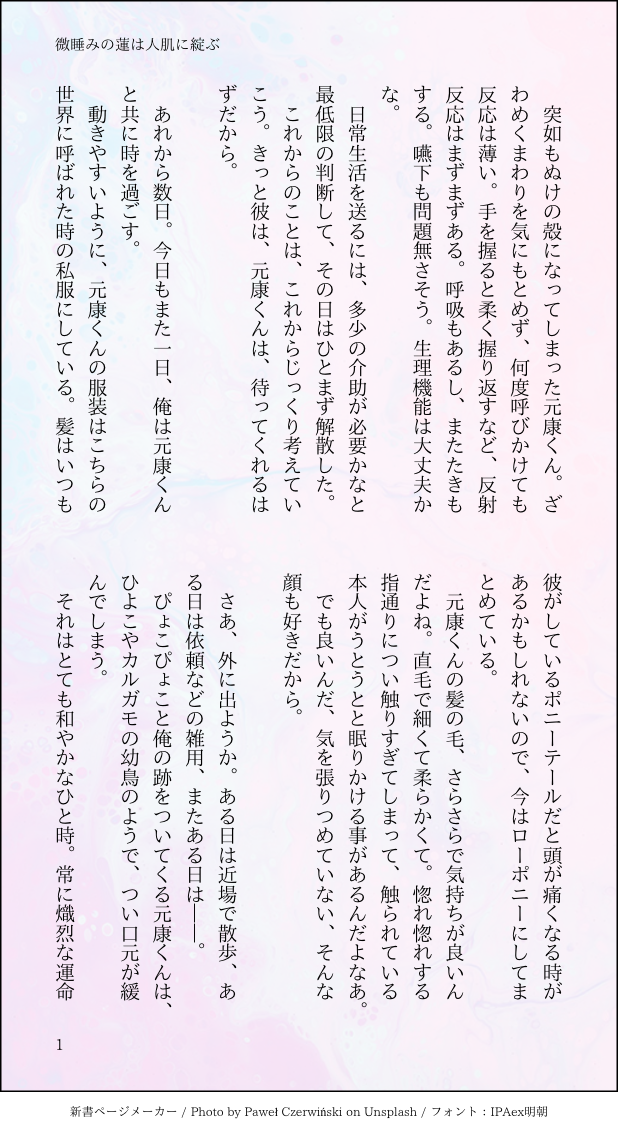 微睡みの蓮は人肌に綻ぶ
突如もぬけの殻になってしまった元康くん。ざ
わめくまわりを気にもとめず、何度呼びかけても
反応は薄い。手を握ると柔く握り返すなど、反射
反応はまずまずある。呼吸もあるし、またたきも
する。嚥下も問題無さそう。生理機能は大丈夫か
な。
日常生活を送るには、多少の介助が必要かなと
最低限の判断して、その日はひとまず解散した。
これからのことは、これからじっくり考えてい
こう。きっと彼は、元康くんは、待ってくれるは
ずだから。
あれから数日。今日もまた一日、俺は元康くん
と共に時を過ごす。
動きやすいように、元康くんの服装はこちらの
世界に呼ばれた時の私服にしている。髪はいつも
彼がしているポニーテールだと頭が痛くなる時が
あるかもしれないので、今はローポニーにしてま
とめている。
元康くんの髪の毛、さらさらで気持ちが良いん
だよね。直毛で細くて柔らかくて。惚れ惚れする
指通りについ触りすぎてしまって、触られている
本人がうとうとと眠りかける事があるんだよなあ。
でも良いんだ、気を張りつめていない、そんな
顔も好きだから。
さあ、外に出ようか。ある日は近場で散歩、あ
る日は依頼などの雑用、またある日は――。
ぴょこぴょこと俺の跡をついてくる元康くんは、
ひよこやカルガモの幼鳥のようで、つい口元が緩
んでしまう。
それはとても和やかなひと時。常に熾烈な運命
1
新書ページメーカー / Photo by Paweł Czerwiński on Unsplash / フォント：IPAex明朝